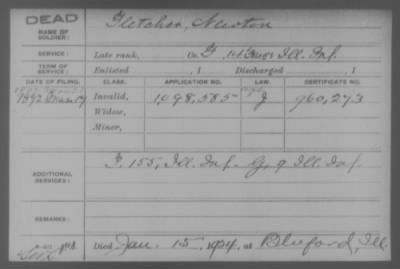 DEAD
NAME OF SOLDIER:
Fletcher, Newton
SERVICE:
Late rank, Co. G, Ill. Inf.
TERM OF SERVICE:
Enlisted , 1 Discharged , 1
DATE OF FILING. CLASS. APPLICATION NO. LAW. CERTIFICATE NO.
1892 Invalid, 1,098,585 G 960,273
Widow,
Minor,
ADDITIONAL SERVICES:
F. 155, Ill. Inf. G, 9 Ill. Inf.
REMARKS:
Died Jan. 15, 1924, at Bluford, Ill.